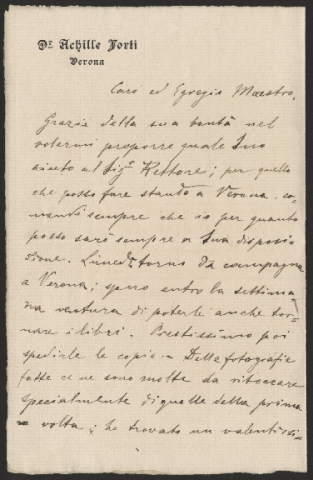 Dr. Achille Forti
Verona
Caro ed Egregio Maestro,
Grazie della sua bontà nel
volermi proporre quale Suo
aiuto al Sigr. Rettore; per quello
che posso fare stando a Verona. co-
mandi sempre che io per quanto
posso sarò sempre a Sua disposi-
zione. Lunedì torno da campagna
a Verona; spero entro la settima-
na ventura di poterle anche tor-
nare i libri. Prestissimo poi
spedirle le copie. - Delle fotografie
fatte ce ne sono molte da ritoccare
specialmente di quelle della prima
volta; ho trovato un valentissi-